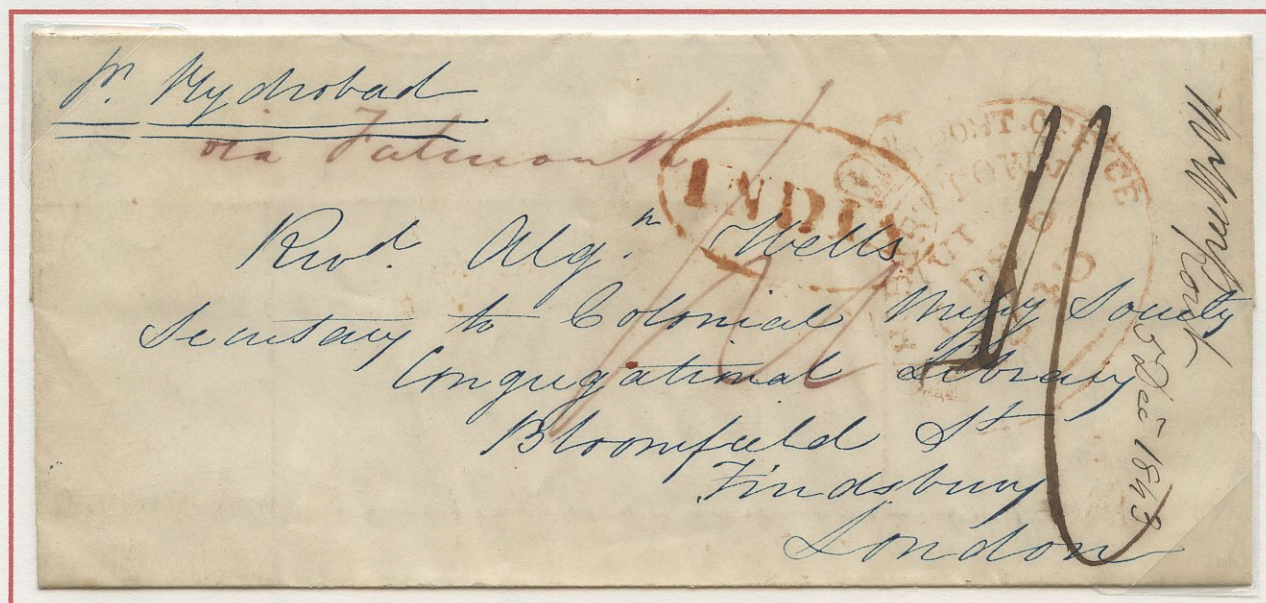 pr. Hydrobad
via Falmouth
INDIA
POST OFFICE
Revd. Alg.n Wells
Secretary to Colonial Missy Society
Congregational Library
Bloomfield St
Findsbury
London
5 Dec 1843